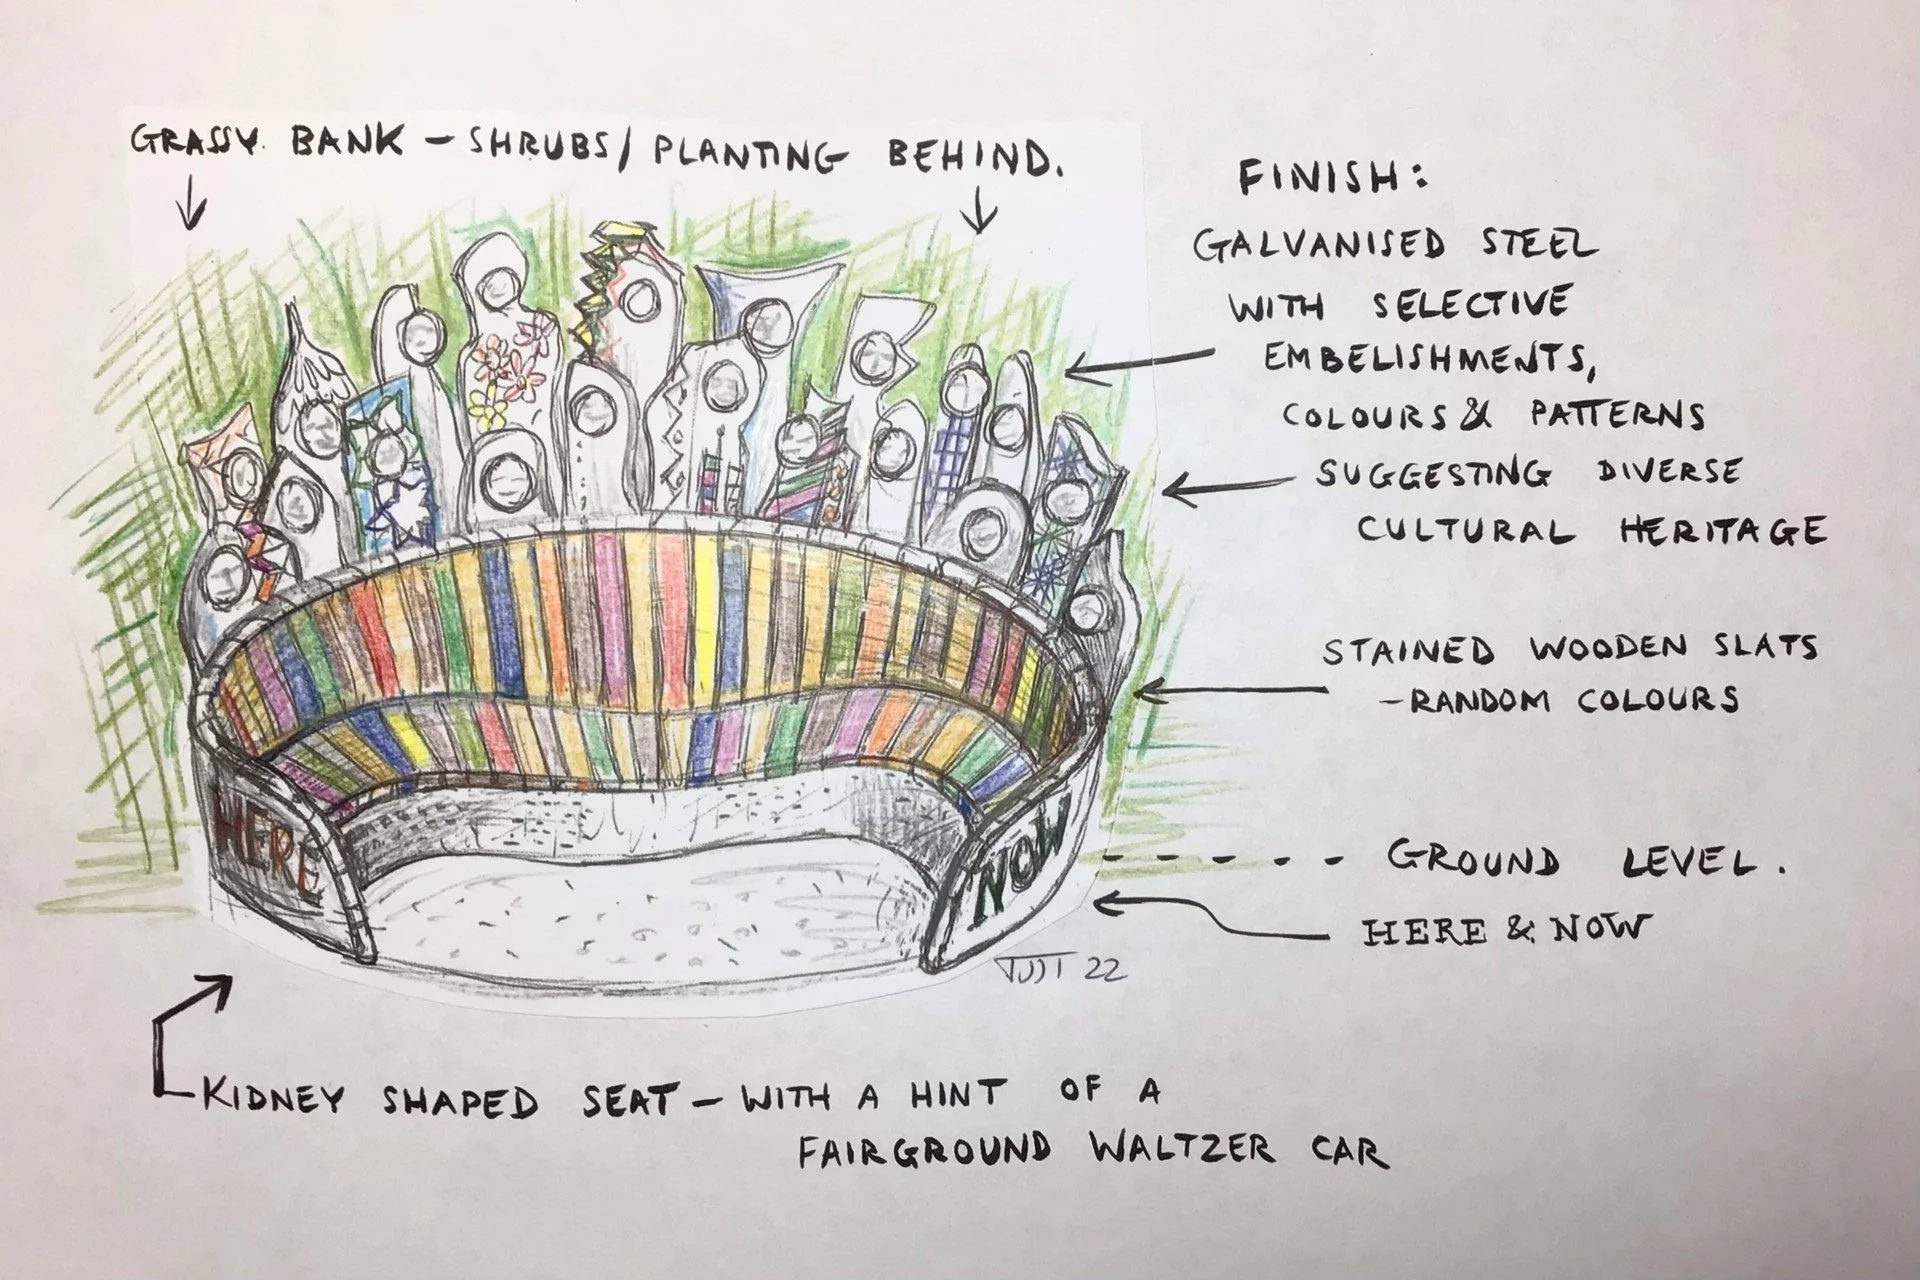 GRASSY BANK - SHRUBS/PLANTING BEHIND.
FINISH:
GALVANISED STEEL
WITH SELECTIVE
EMBELISHMENTS,
COLOURS & PATTERNS
SUGGESTING DIVERSE
CULTURAL HERITAGE
STAINED WOODEN SLATS
-RANDOM COLOURS
HERE
NOW
GROUND LEVEL.
HERE & NOW
22
KIDNEY SHAPED SEAT - WITH A HINT OF A
FAIRGROUND WALTZER CAR